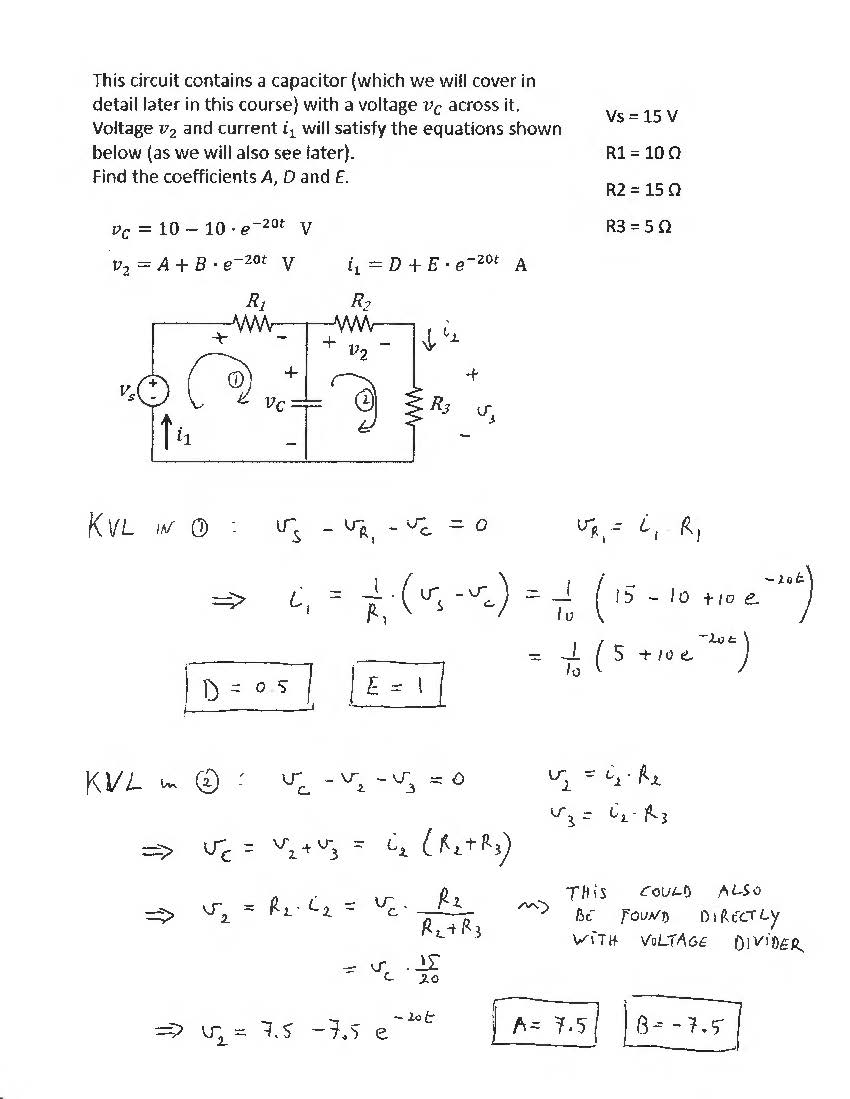 This circuit contains a capacitor (which we will cover in
detail later in this course) with a voltage v_C across it.
Voltage v_2 and current i_1 will satisfy the equations shown
below (as we will also see later).
Find the coefficients A, D and E.
Vs = 15 V
R1 = 10 Ω
R2 = 15 Ω
R3 = 5 Ω
v_C = 10 − 10 · e^{−20t} V
v_2 = A + B · e^{−20t} V i_1 = D + E · e^{−20t} A
R_1 R_2
+ − + v_2 − ↓ i_2
V_s + − ① + v_C − ② R_3 + v_3 −
i_1
KVL IN ① : v_S − v_{R_1} − v_C = 0 v_{R_1} = i_1 R_1
⇒ i_1 = 1/R_1 · (v_S − v_C) = 1/10 (15 − 10 + 10 e^{−20t})
= 1/10 (5 + 10 e^{−20t})
D = 0.5 E = 1
KVL in ② : v_C − v_2 − v_3 = 0 v_2 = i_2 · R_2
v_3 = i_2 · R_3
⇒ v_C = v_2 + v_3 = i_2 (R_2 + R_3)
⇒ v_2 = R_2 · i_2 = v_C · R_2/(R_2 + R_3)
THIS COULD ALSO
BE FOUND DIRECTLY
WITH VOLTAGE DIVIDER
= v_C · 15/20
⇒ v_2 = 7.5 − 7.5 e^{−20t} A = 7.5 B = −7.5